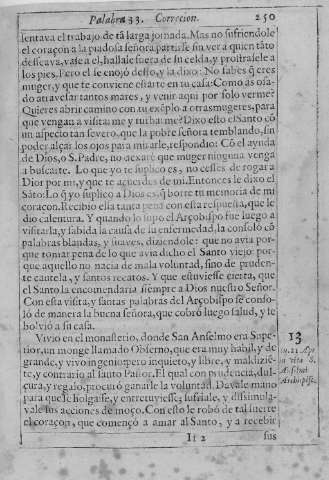 Palabra 33. Correcion. 250
sentava el trabajo de tã larga jornada. Mas no sufriendole
el coraçon a la piadosa señora partirse sin ver a quien tãto
desseava, vase a el, hallale fuera de su celda, y prostrasele a
los pies. Pero el se enojò desto, y la dixo: No sabes q̃ eres
muger, y que te conviene estarte en tu casa: Como as osa-
do atravesar tantos mares, y venir aqui por solo verme?
Quieres abrir camino con tu exẽplo a otras mugeres, para
que vengan a visitarme y turbarme? Dixo esto el Santo cõ
un aspecto tan severo, que la pobre señora temblando, sin
poder alçar los ojos para mirarle, respondio: Cõ el ayuda
de Dios, o S. Padre, no dexarè que muger ninguna venga
a buscarte. Lo que yo te suplico es, no cesses de rogar a
Dios por mi, y que te acuerdes de mi. Entonces le dixo el
Sãto: Lo q̃ yo suplico a Dios es, q̃ borre tu memoria de mi
coraçon. Recibio ella tanta pena con esta respuesta, que le
dio calentura. Y quando lo supo el Arçobispo fue luego a
visitarla, y sabida la causa de su enfermedad, la consolò cõ
palabras blandas, y suaves, diziendole: que no avia por-
que tomar pena de lo que avia dicho el Santo viejo: por-
que aquello no nacia de mala voluntad, sino de pruden-
te cautela, y santos recatos. Y que estuviesse cierta, que
el Santo la encomendaria siempre a Dios nuestro Señor.
Con esta visita, y santas palabras del Arçobispo sẽ conso-
lò de manera la buena señora, que cobrò luego salud, y se
bolviò a su casa.
Vivio en el monasterio, donde San Anselmo era Supe-
rior, un monge llamado Osberno, que era muy habil, y de
grande, y vivo ingenio pero inquieto, y libre, y maldizie-
te, y contrario al santo Pastor. El qual con prudencia, dul-
çura, y regalo, procurò ganarle la voluntad. Davale mano
para que se holgasse, y entretuviesse; sufriale, y dissimula-
vale sus acciones de moço. Con esto le robò de tal suerte
el coraçon, que començò a amar al Santo, y a recebir
13
Ii 2 sus